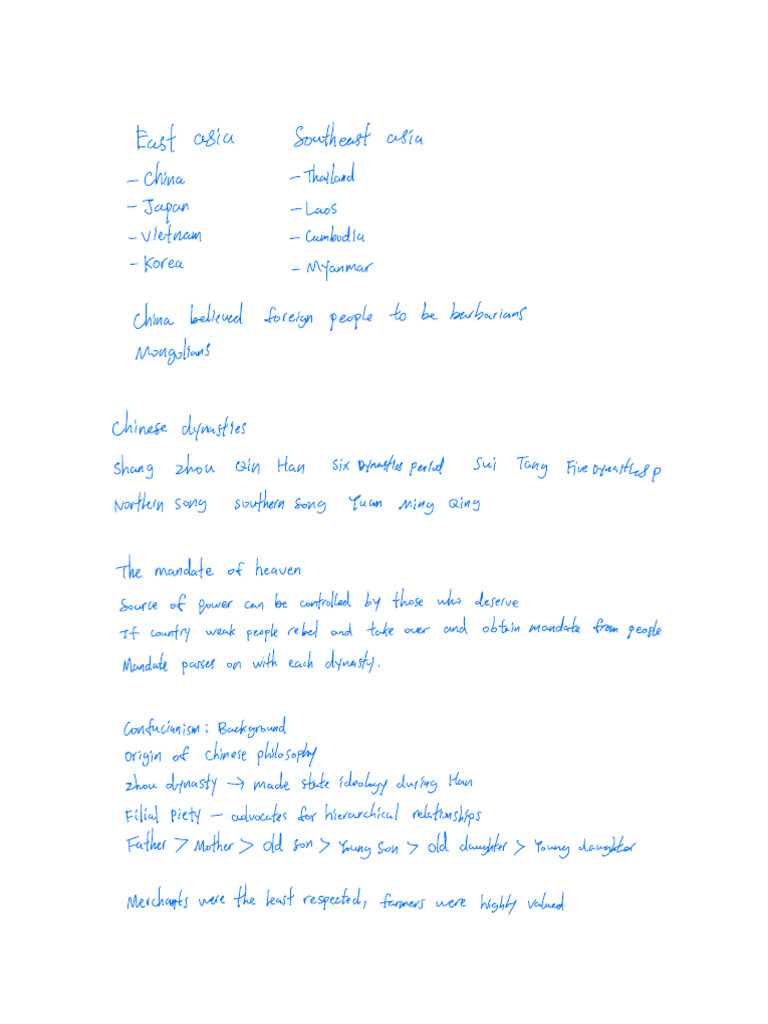 East asia Southeast asia
- China - Thailand
- Japan - Laos
- Vietnam - Cambodia
- Korea - Myanmar
China believed foreign people to be barbarians
Mongolians
Chinese dynasties
Shang Zhou Qin Han Six Dynasties period Sui Tang Five Dynasties P
Northern Song Southern Song Yuan Ming Qing
The mandate of heaven
Source of power can be controlled by those who deserve
If country weak people rebel and take over and obtain mandate from people
Mandate passes on with each dynasty.
Confucianism: Background
Origin of Chinese philosophy
Zhou dynasty → made state ideology during Han
Filial Piety – advocates for hierarchical relationships
Father > Mother > old son > Young son > old daughter > Young daughter
Merchants were the least respected, farmers were highly valued